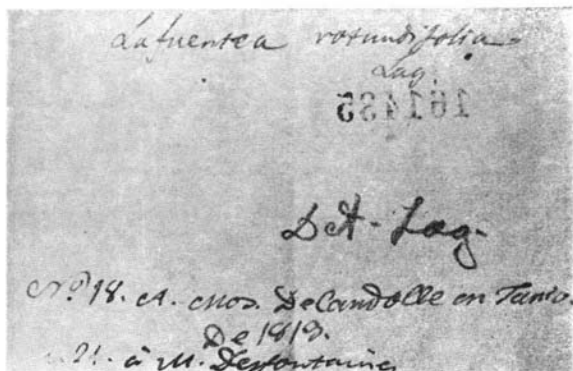 Lafuentea rotundifolia
Lag.
Det. Lag.
Nº 18. A. Mos. DeCandolle en Junio.
De 1819.
21. à M. Desfontaines